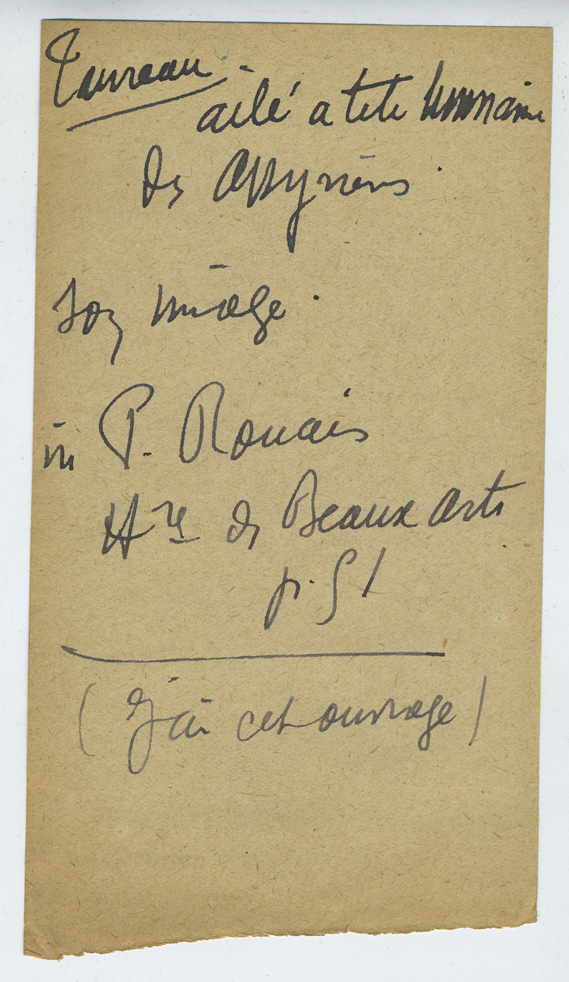 Taureau.
ailé a tete humaine
des assyriens.
son image.
in P. Rouaix
Hre des Beaux arts
p. 51
(j'ai cet ouvrage)